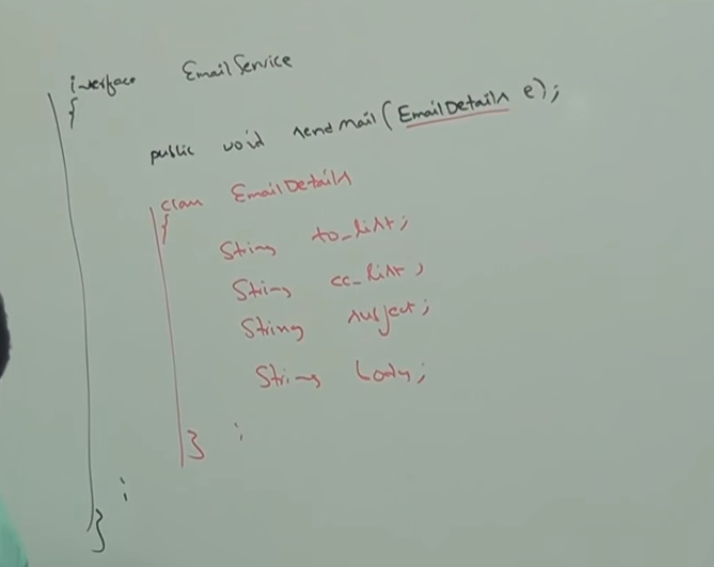 interface EmailService
{
public void sendMail(EmailDetails e);
class EmailDetails
{
String to_list;
String cc_list;
String subject;
String body;
:
}
:
}